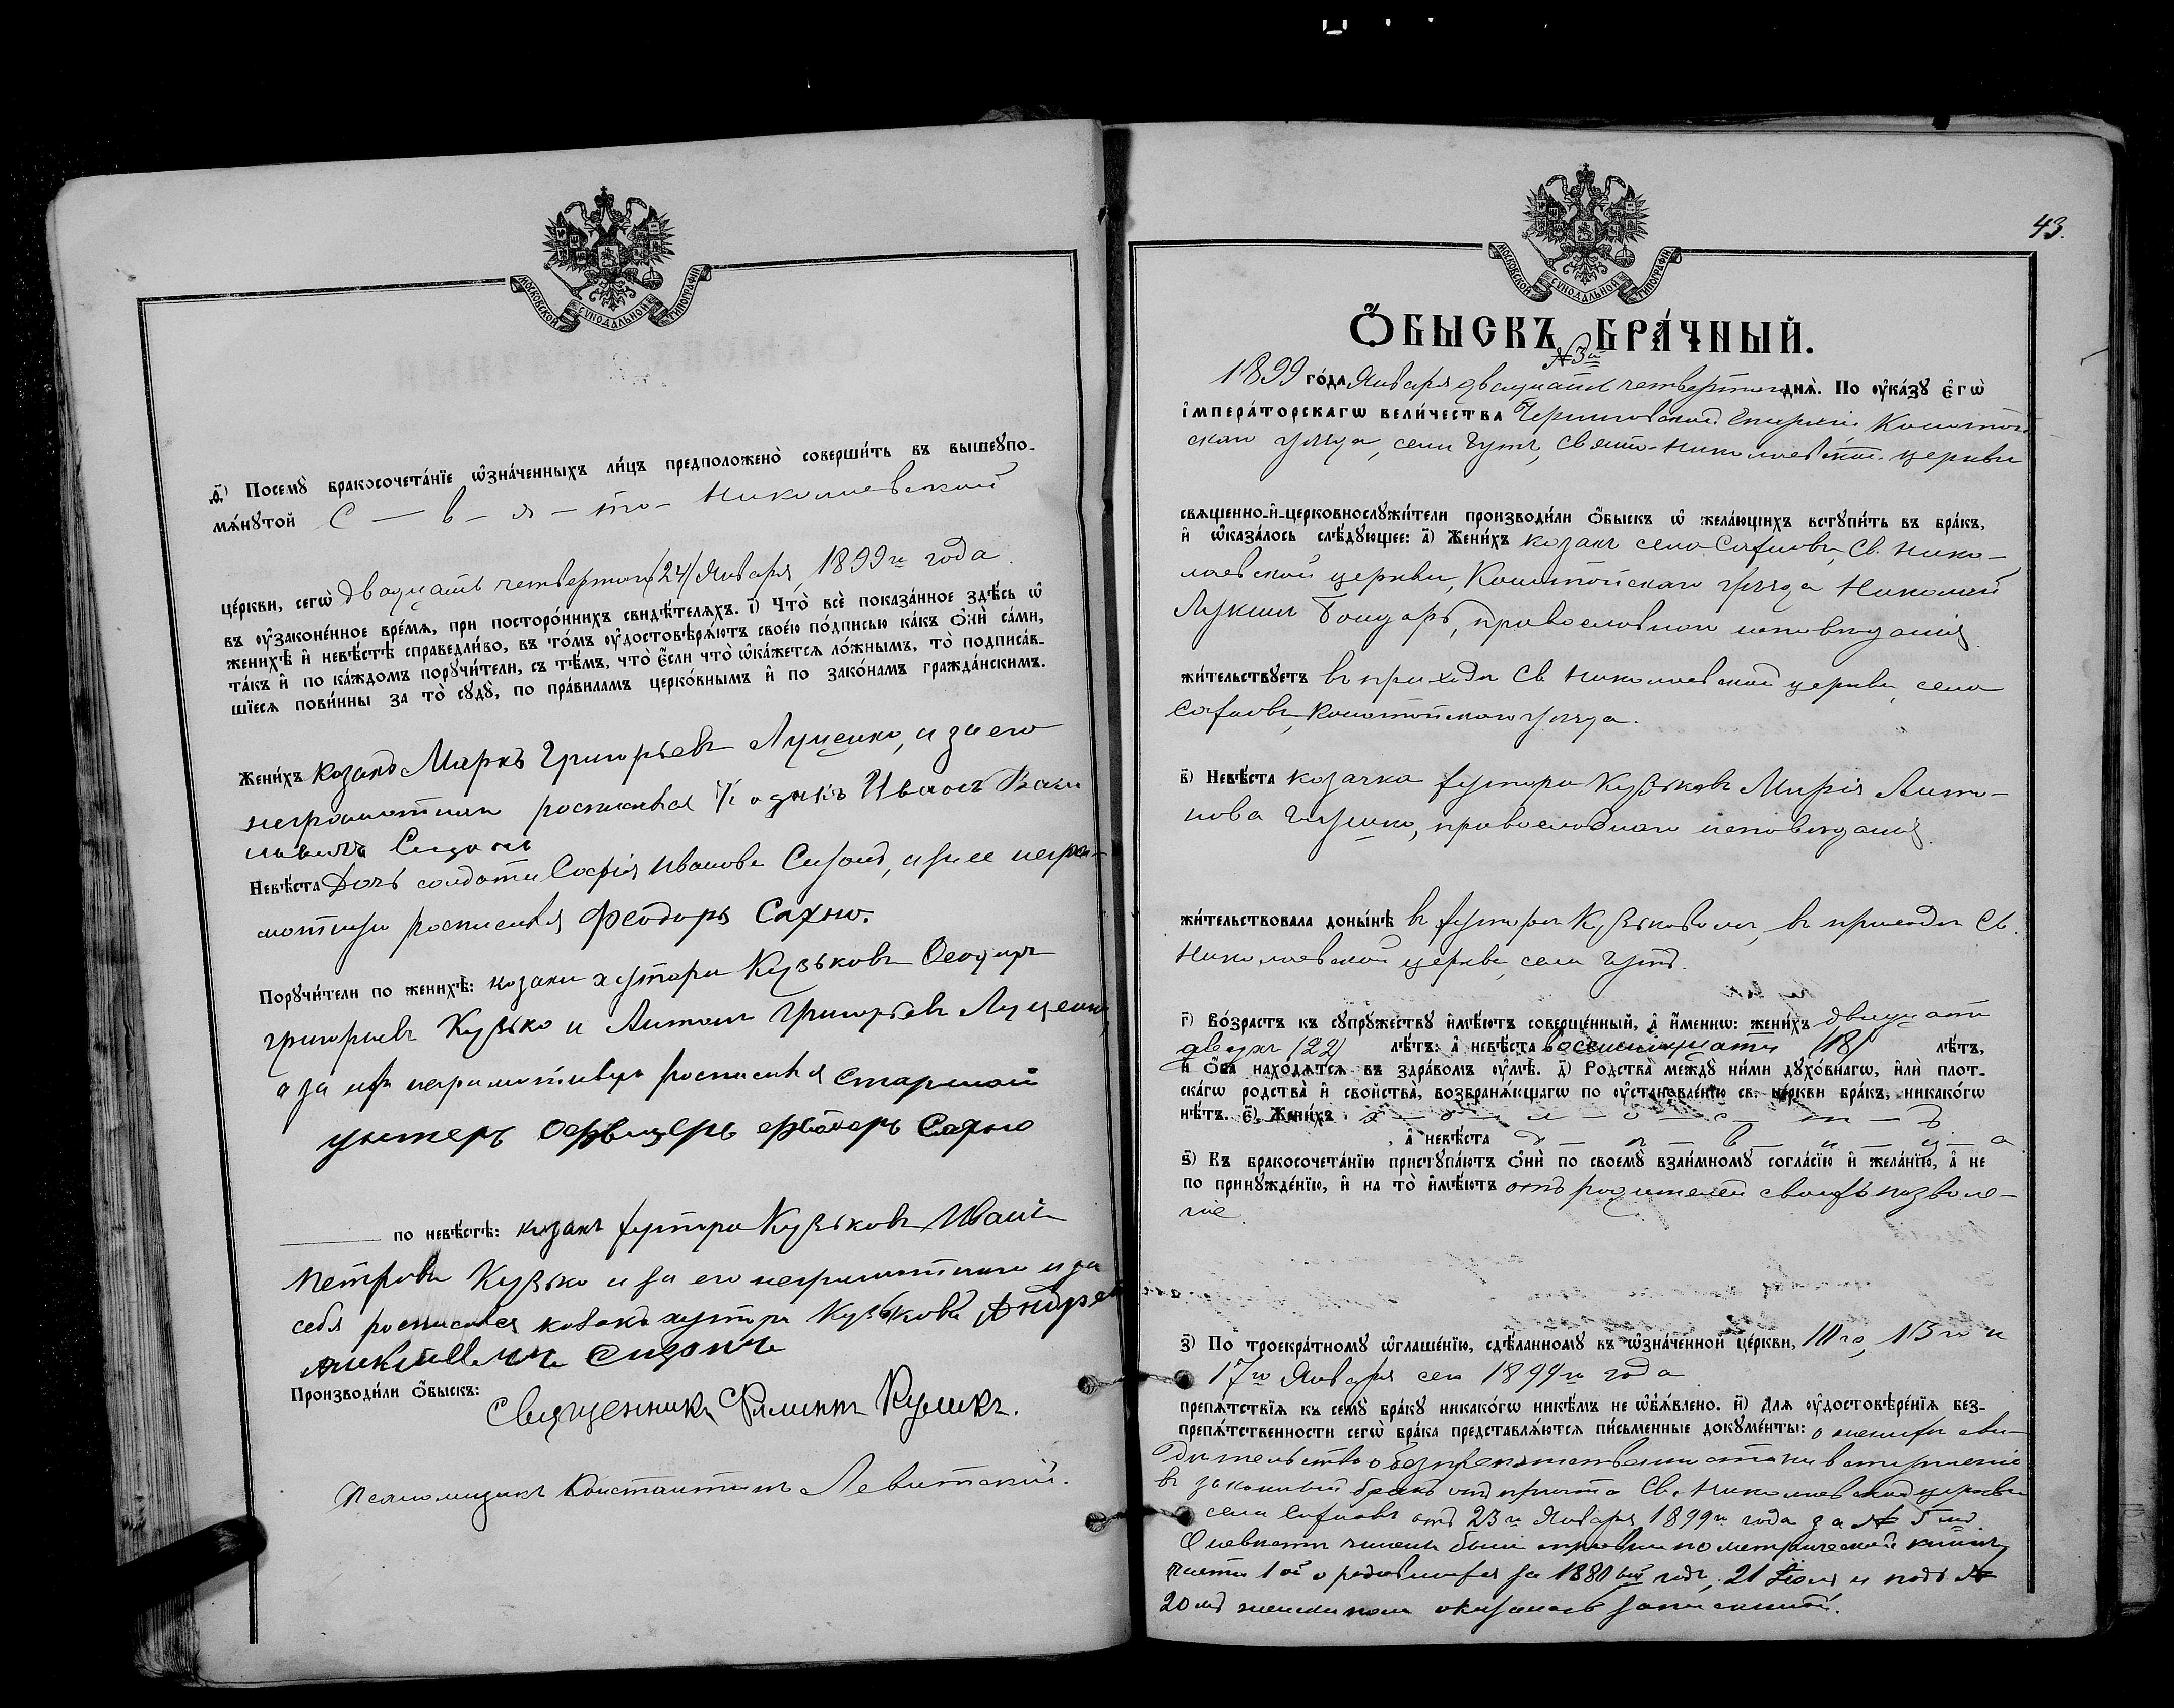 МОСКОВСКОЙ СУНОДАЛЬНОЙ ТИПОГРАФІИ
д҃) Посемꙋ бракосочета́нїе ѡ҆зна́ченныхъ ли́цъ предположено̀ соверши́ть въ вышеꙋпо-
мѧ́нꙋтой С — в — я — то - Николаевской
це́ркви, сегѡ̀ двадцать четвертого (24) Января, 1899го года.
въ ᲂу҆законе́нное вре́мѧ, при посторо́ннихъ свидѣ́телѧхъ. і҃) Что̀ всѐ показа́нное здѣ́сь ѡ҆
женихѣ̀ и҆ невѣ́стѣ справедли́во, въ то́мъ ᲂу҆достовѣрѧ́ютъ свое́ю по́дписью ка́къ ѻ҆нѝ са́ми,
та́къ и҆ по ка́ждомъ порꙋчи́тели, съ тѣ́мъ, что̀ є҆́сли что̀ ѡ҆ка́жетсѧ ло́жнымъ, то̀ подписа́в-
шїесѧ пови́нны за то̀ сꙋдꙋ̀, по пра́виламъ церко́внымъ и҆ по зако́намъ гражда́нскимъ.
Жени́хъ козакъ Маркъ Григорьевъ Луценко, а за его
неграмотнаго росписался козакъ Иванъ
Сизонъ
Невѣ́ста Дочь солдата Софія Иванова Сизонъ, а за ее негра-
мотную росписался Феодоръ Сахно.
Порꙋчи́тели по женихѣ̀: козаки хутора Кузьковъ
Григорьевъ Кузько и Антонъ Григорьевъ Луценко,
а за ихъ неграмотныхъ росписался старшой
унтеръ офвицеръ Феодоръ Сахно
по невѣ́стѣ: козакъ хутора Кузьковъ Иванъ
Петровъ Кузько и за его неграмотнаго и за
себя росписался козакъ хутора Кузькова Андрей
Сизонъ
Производи́ли ѻ҆́быскъ: Священникъ Филиппъ Куликъ.
Псаломщикъ Константинъ Левитскій.
43.
МОСКОВСКОЙ СУНОДАЛЬНОЙ ТИПОГРАФІИ
Ѻ҆́БЫСКЪ БРА́ЧНЫЙ.
№ 3й
1899 го́да Января двадцать четвертого днѧ̀. По ᲂу҆ка́зꙋ є҆гѡ̀
і҆мпера́торскагѡ вели́чества Черниговской Епархіи Конотоп-
скаго уѣзда, села Гутъ, Свято-Николаевской церкви
свѧщенно-и҆-церковнослꙋжи́тели производи́ли ѻ҆́быскъ ѡ҆ жела́ющихъ встꙋпи́ть въ бра́къ,
и҆ ѡ҆каза́лось слѣ́дꙋющее: а҃) Жени́хъ козакъ села Сахновъ, Св. Нико-
лаевской церкви, Конотопскаго уѣзда Николай
Лукинъ Бондарь, православнаго исповѣданія
жи́тельствꙋетъ въ приходѣ Св Николаевской церкви, села
Сахновъ, Конотопскаго уѣзда.
в҃) Невѣ́ста козачка хутора Кузьковъ Марія Анто-
нова православнаго исповѣданія
жи́тельствовала доны́нѣ въ хуторѣ Кузьковомъ, въ приходѣ Св.
Николаевской церкви, села Гутъ.
г҃) Во́зрастъ къ сꙋпрꙋ́жествꙋ и҆мѣ́ютъ соверше́нный, а҆ и҆́меннѡ: жени́хъ двадцати
двухъ (22) лѣ́тъ: а҆ невѣ́ста восемнадцати (18) лѣ́тъ,
и҆ ѻ҆́ба нахо́дѧтсѧ въ здра́вомъ ᲂу҆мѣ̀. д҃) Родства̀ междꙋ̀ ни́ми дꙋхо́внагѡ, и҆лѝ плот-
ска́гѡ родства̀ и҆ сво́йства̀, возбранѧ́ющагѡ по ᲂу҆становле́нїю св. це́ркви бра́къ, никако́гѡ
нѣ́тъ. є҃) Жени́хъ х — о — л — о — с — т — ъ
, а҆ невѣ́ста д — ѣ — в — и — ц — а
ѕ҃) Къ бракосочета́нїю пристꙋпа́ютъ ѻ҆нѝ по своемꙋ̀ взаи́мномꙋ согла́сїю и҆ жела́нїю, а҆ не
по принꙋжде́нїю, и҆ на то̀ и҆мѣ́ютъ отъ родителей своихъ позволе-
ніе.
з҃) По троекра́тномꙋ ѡ҆глаше́нїю, сдѣ́ланномꙋ въ ѡ҆зна́ченной це́ркви, 10го, 13го и
17го Января сего 1899го года
препѧ́тствїѧ къ семꙋ̀ бра́кꙋ никако́гѡ никѣ́мъ не ѡ҆б̾ѧ́влено. и҃) Длѧ ᲂу҆достовѣре́нїѧ без-
препѧ́тственности сегѡ̀ бра́ка представлѧ́ютсѧ пи́сьменные докꙋме́нты: о женихѣ сви-
дѣтельство о безпрепятственности въ вступленію
въ законный бракъ отъ причта Св. Николаевской церкви
села Сахновъ отъ 23го Января 1899го года за № 5мъ.
О невѣстѣ была справка по метрической книгѣ,
части 1ой о родившихся за 1880ый годъ, 21 Іюля и подъ №
20мъ женска пола оказалась записанной.